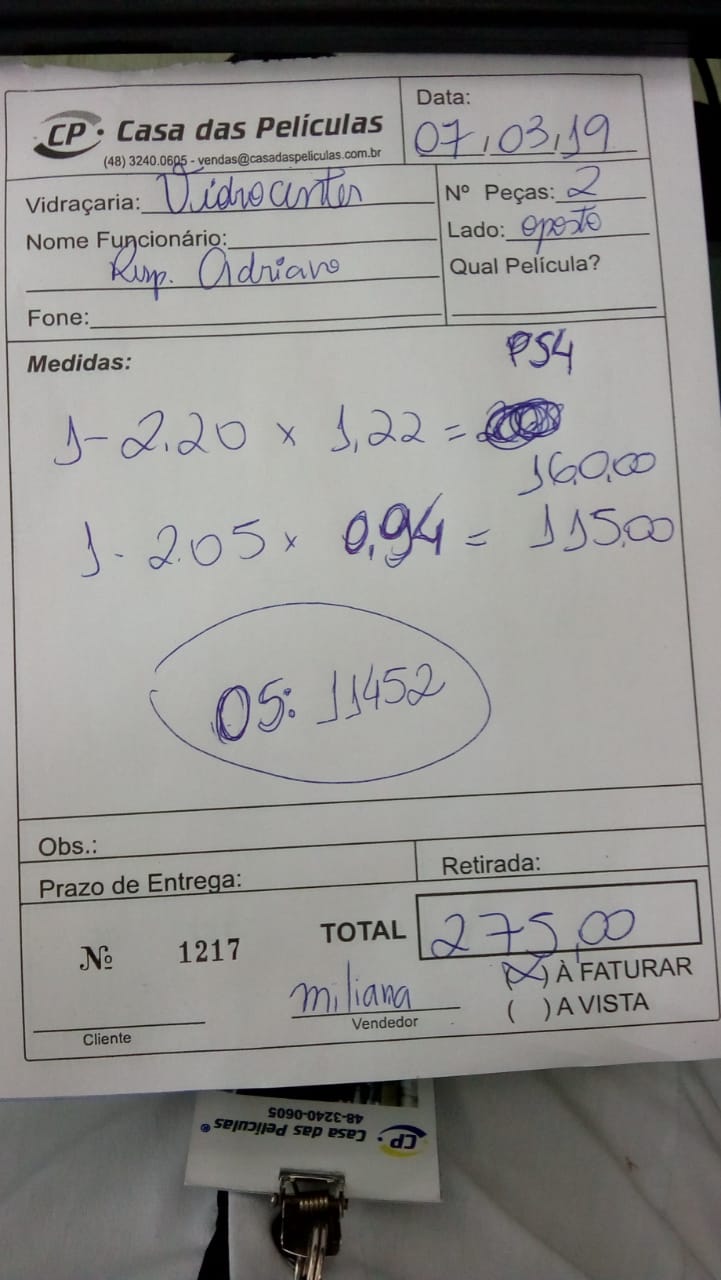 CP • Casa das Películas
(48) 3240.0605 - vendas@casadaspeliculas.com.br
Data:
07/03/19
Vidraçaria: Vidrocenter
Nome Funcionário:
Resp. Adriano
Fone:
Nº Peças: 2
Lado: oposto
Qual Película?
Medidas:
PS4
1- 2.20 x 1,22 =
160,00
1- 2.05 x 0,94 = 115,00
OS: 11452
Obs.:
Prazo de Entrega:
Retirada:
Nº 1217
TOTAL 275,00
(X) À FATURAR
( ) A VISTA
miliana
Vendedor
Cliente
CP • Casa das Películas®
48-3240-0605